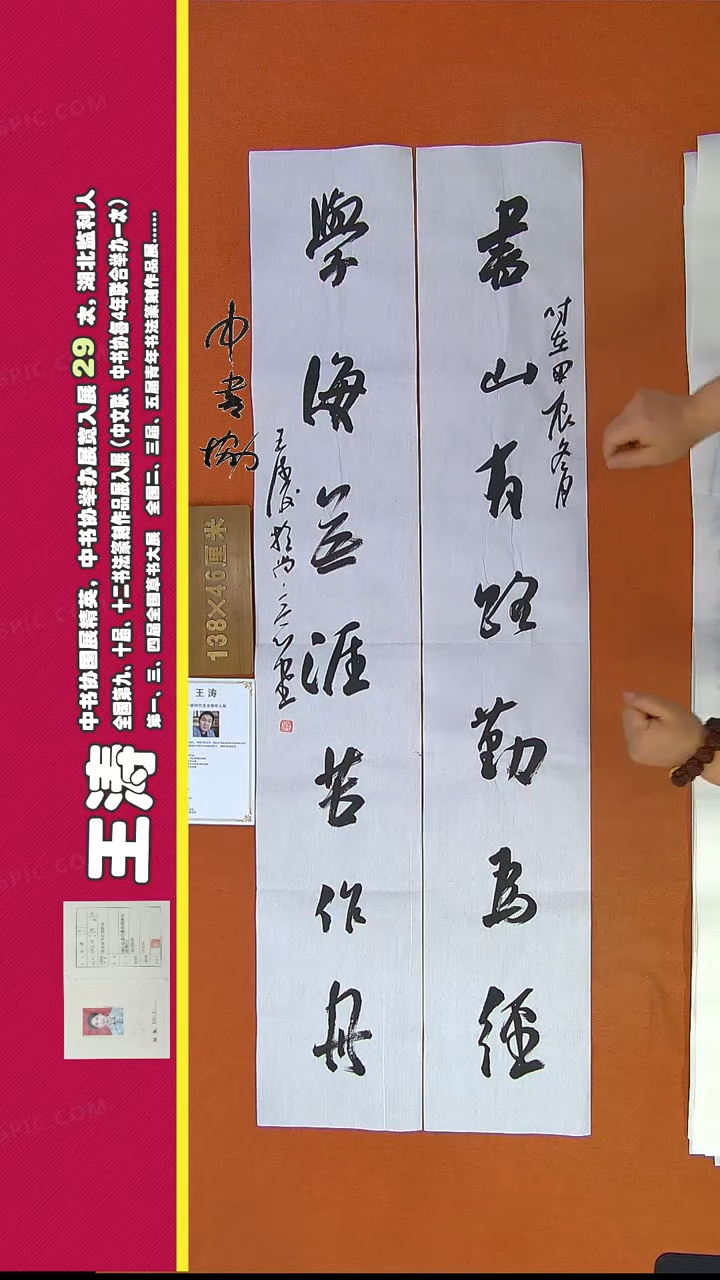 書山有路勤為徑
時在甲辰冬月
學海無涯苦作舟
王濤
中書協
138×46厘米
王 涛
王涛
中书协国展精英，中书协举办展览入展 29 次，湖北监利人
全国第九、十届、十二书法篆刻作品展入展（中文联、中书协每4年联合举办一次）
第一、三、四届全国草书大展 全国二、三届、五届青年书法篆刻作品展......